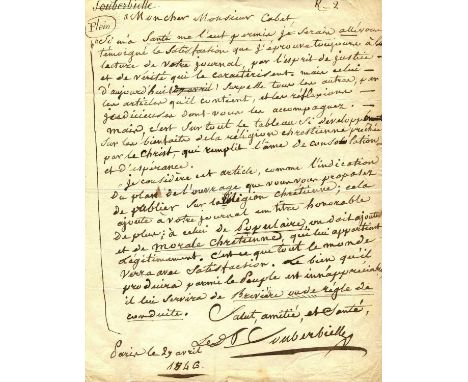 Souberbielle.
R. 2
Plein
Mon cher Monsieur Cabet,
Si ma Santé me l'eut permie je Serais allé vous
témoigné la Satisfaction que j'éprouve toujours à la
lecture de votre journal, par l'esprit de justice
et de vérité qui le caractérisent, mais celui
d'aujourd'hui 29 avril! Surpasse tous les autres, par
les articles qu'il contient, et les réflexions
judicieuses dont vous les accompagnez.
mais, c'est Sur tout le tableau Si développé
Sur les bienfaits de la réligion chretienne prêchée
par le Christ, qui remplit l'âme de consolation
et d'espérance.
Je considère cet article, comme l'indication
du plan de l'ouvrage que vous vous proposez
de publier Sur la réligion Chrétienne; cela
ajoute à votre journal un titre honorable
de plus; à celui de Populaire on doit ajouter
et de morale chrétienne, qui lui appartient
légitimement. c'est ce que tout le monde
verra avec Satisfaction. Le bien qu'il
produira parmi le Peuple est innappréciable
il lui Servira de Brévière ou de règle de
conduite. Salut, amitié, et Santé,
Le Dr Souberbielle
Paris le 29 avril
1846